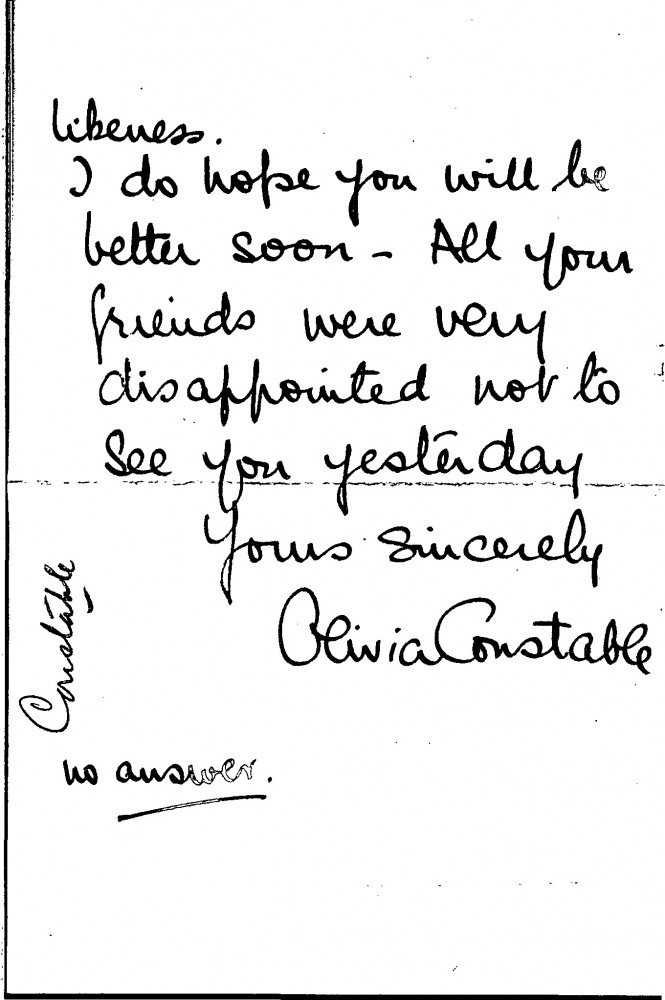 likeness.
I do hope you will be
better soon - All your
friends were very
disappointed not to
see you yesterday
Yours sincerely
Olivia Constable
Constable
no answer.